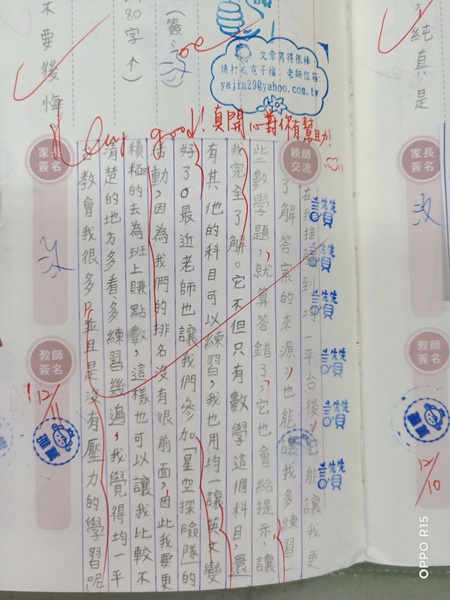 純真是
不要後悔
80字↑)
(簽
文章寫得很棒
請打成電子檔,老師信箱:
yajin29@yahoo.com.tw
Very good! 真開心對你有幫助!
親師交流
自我接觸到均一平台後,它能讓我更
了解答案的來源,也能讓我多練習一
些數學題,就算答錯了,它也會給提示,讓
我完全了解。它不但只有數學這個科目,還
有其他的科目可以練習,我也用均一讓英文變
好了。最近老師也讓我們參加「星空探險隊」的
活動,因為我們的排名沒有很前面,因此我要更
積極的去為班上賺點數,這樣也可以讓我比較不
清楚的地方多看多練習幾遍,我覺得均一平
教會我很多,並且是沒有壓力的學習呢
家長簽名
教師簽名
12/11
家長簽名
教師簽名
12/10
讚
讚
讚
讚
讚
讚
OPPO R15